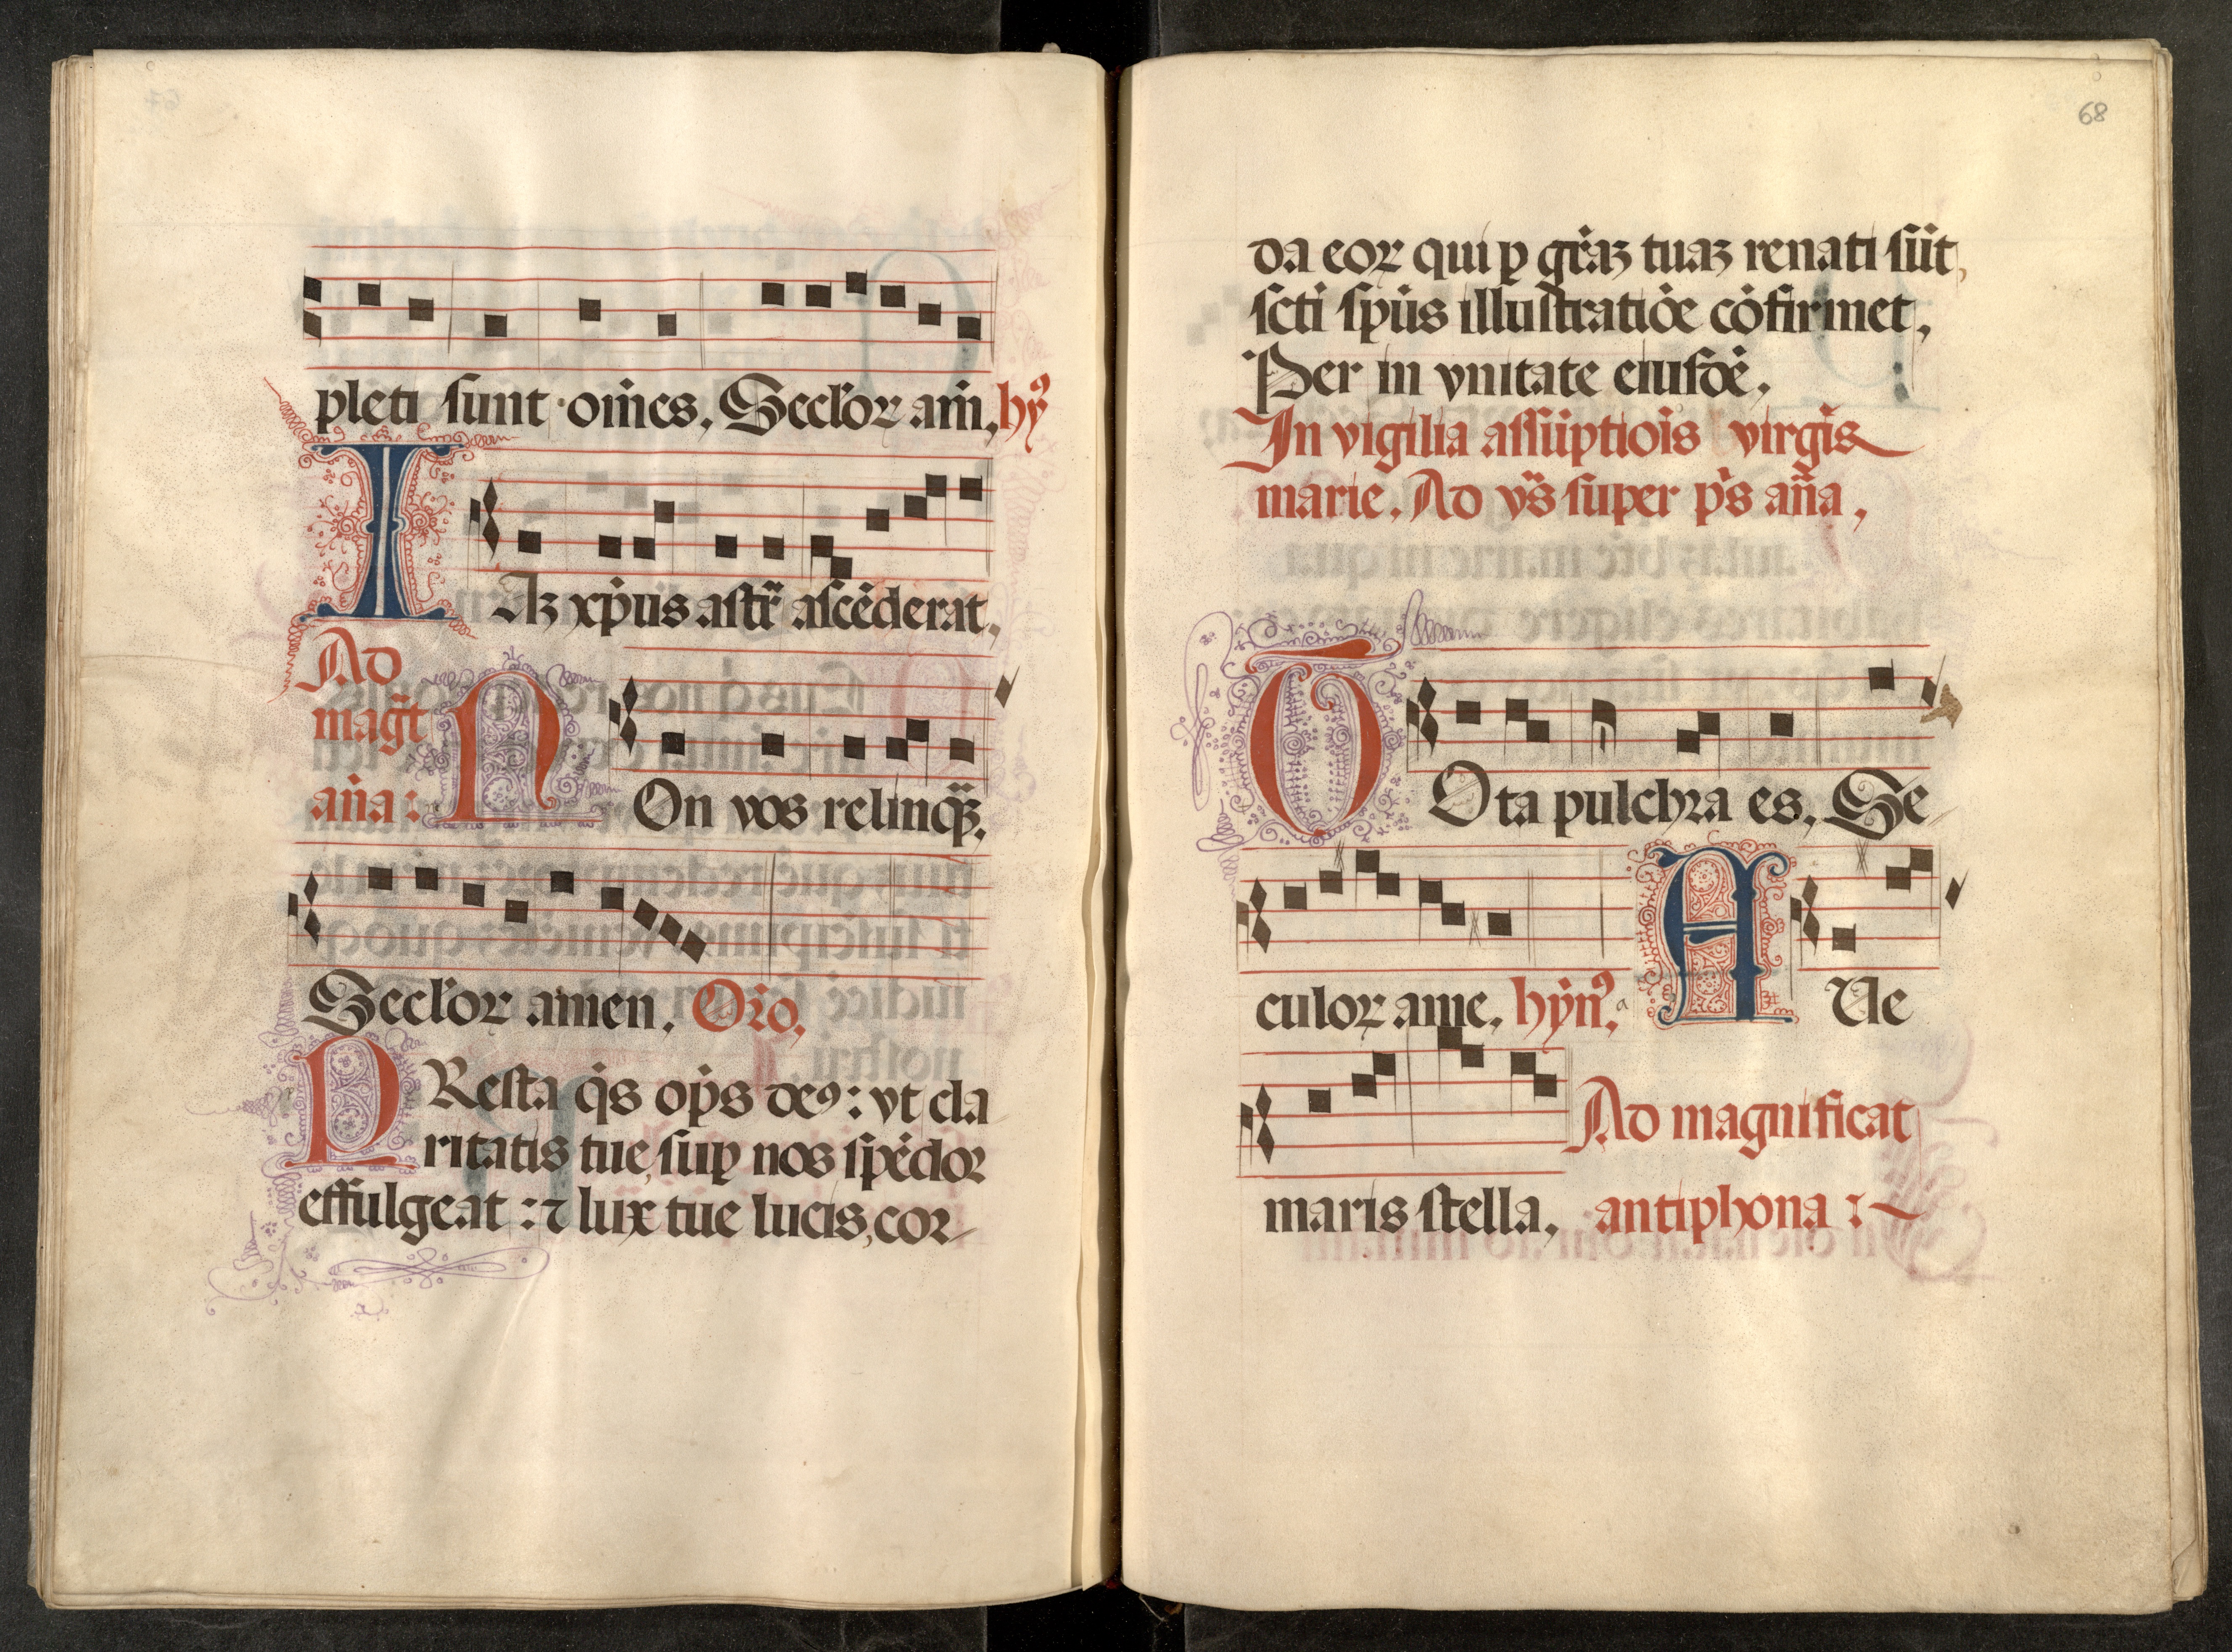 pleti sunt omes, Seclor am, hy
IAz xpus astr ascederat,
Ad
magt
ana: NOn vos relinq,
Seclor amen, Oro,
PResta qs ops deꝰ: vt cla
ritatis tue, suꝑ nos spedor
effulgeat: ⁊ lux tue lucis, cor
68
da eoꝝ qui ꝑ graz tuaz renati sut,
scti spus illustratioe cofirmet,
Per in vnitate eiusde,
In vigilia assuptiois virgis
marie, Ad vs super ps ana,
TOta pulchra es, Se
culoꝝ ame, hynꝰ, AUe
Ad magnificat
maris stella, antiphona: